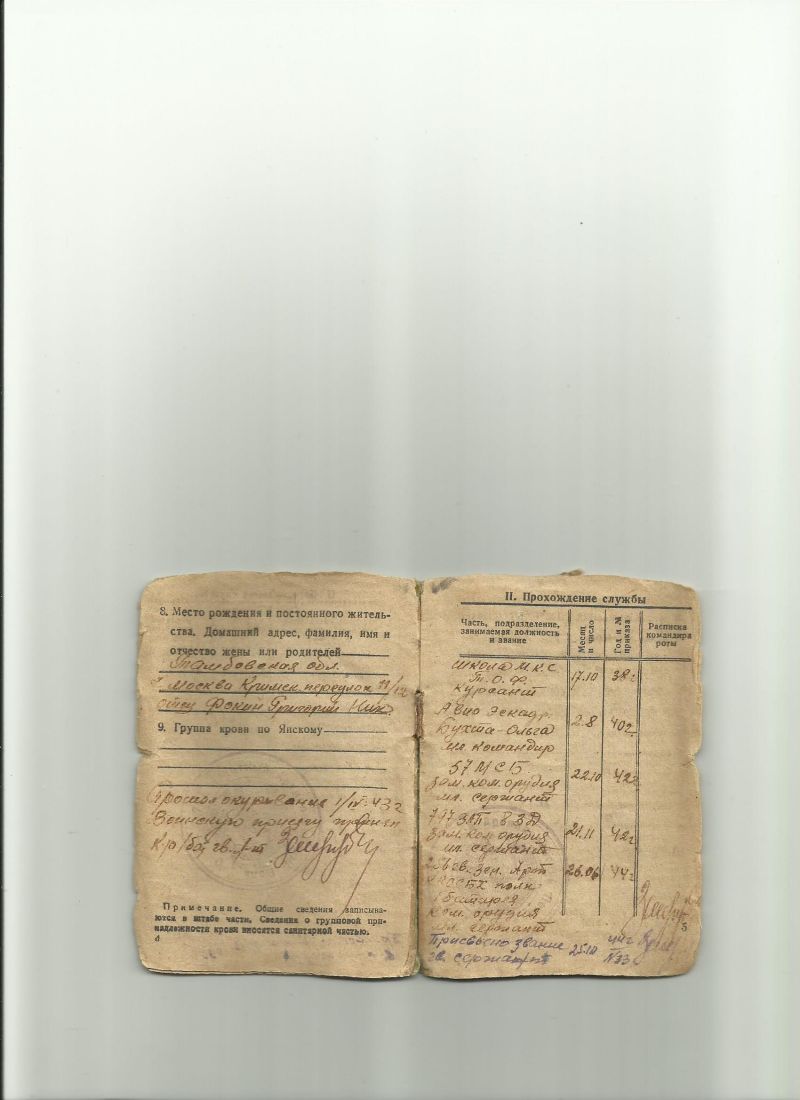 8. Место рождения и постоянного житель-
ства. Домашний адрес, фамилия, имя и
отчество жены или родителей
Тамбовская обл.
г Москва Кримск. переулок
отец Фокин Григорий Ник
9. Группа крови по Янскому
Прошол окуривание 1/IV-43г
Воинскую присягу принял
К-р гв. с-т
Примечание. Общие сведения записыва-
ются в штабе части. Сведения о групповой при-
надлежности крови вносятся санитарной частью.
4
II. Прохождение службы
Часть, подразделение,
занимаемая должность
и звание
Месяц
и число
Год и №
приказа
Расписка
командира
роты
Школа М.К.С
Т.О.Ф. 17.10 38г
Курсант
Авио Эскадр.
Бухта-Ольга 2.8 40г
мл. командир
57 МСБ
зам. ком. орудия 22.10 42г
мл. сержант
797 ЗАП
зам. ком орудия 21.11 42г
мл. сержант
гв. зен. Арт 26.06 44г
полк
1 батарея
ком. орудия
мл. сержант
Присвоено звание 44г
гв. сержант 25.10
5